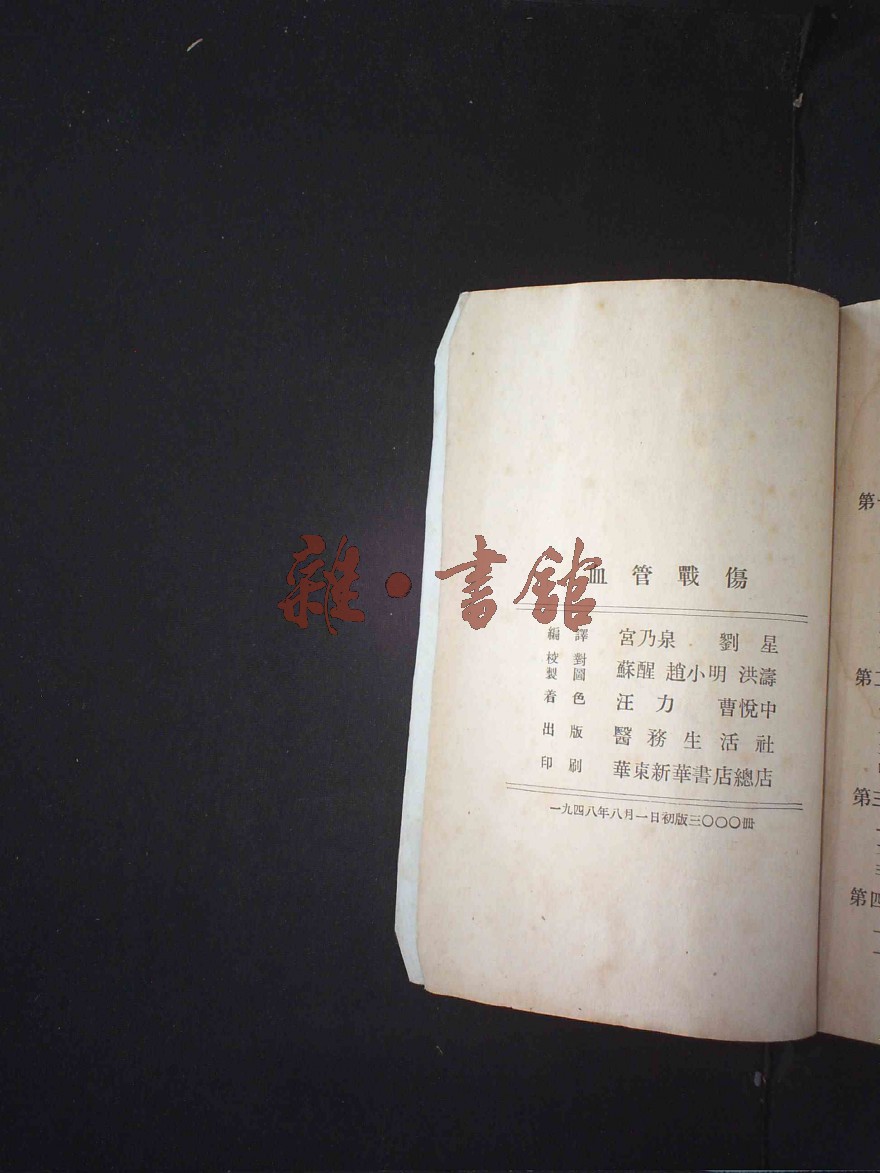 血管戰傷
編譯 宮乃泉 劉星
校對
製圖 蘇醒 趙小明 洪濤
着色 汪力 曹悅中
出版 醫務生活社
印刷 華東新華書店總店
一九四八年八月一日初版三〇〇〇冊
雜·書館
第
第二
第三
第四